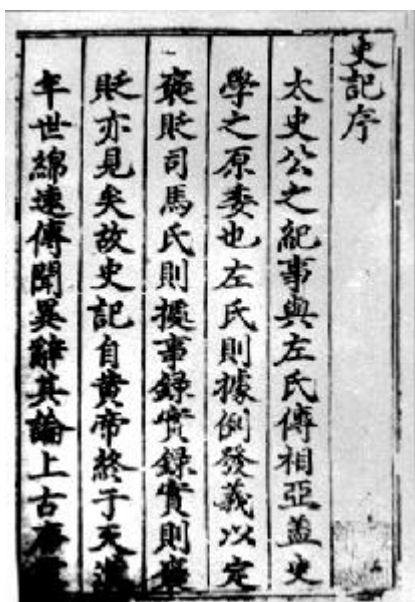 史記序
太史公之紀事與左氏傳相亞蓋史
學之原委也左氏則據例發義以定
褒貶司馬氏則據事錄實錄實則褒
貶亦見矣故史記自黄帝終于天漢
年世綿遠傳聞異辭其論上古唐